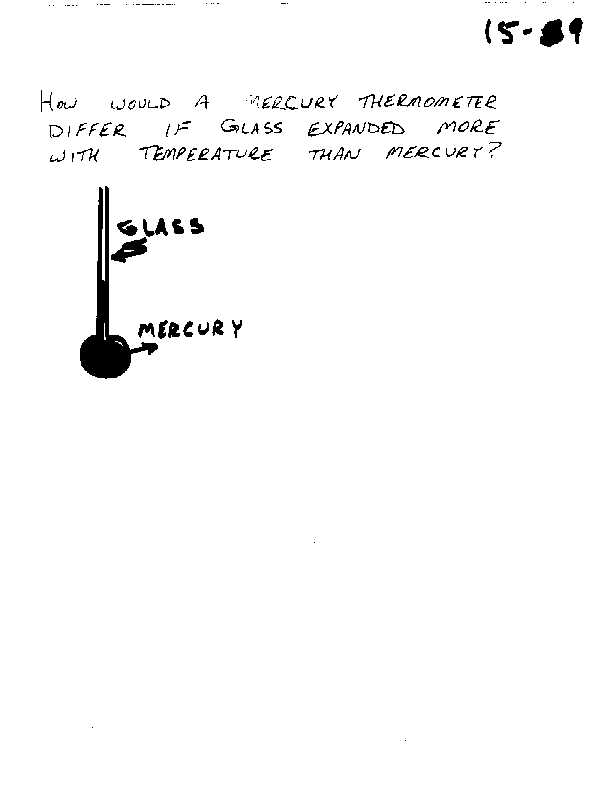 HOW WOULD A MERCURY THERMOMETER
DIFFER IF GLASS EXPANDED MORE
WITH TEMPERATURE THAN MERCURY?
GLASS
MERCURY